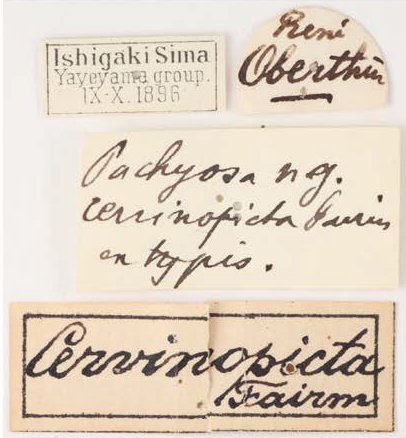 Ishigaki Sima
Yayeyama group.
IX-X. 1896
René
Oberthür
Pachyosa n g.
cervinopicta Fairm
en typis.
Cervinopicta
Fairm